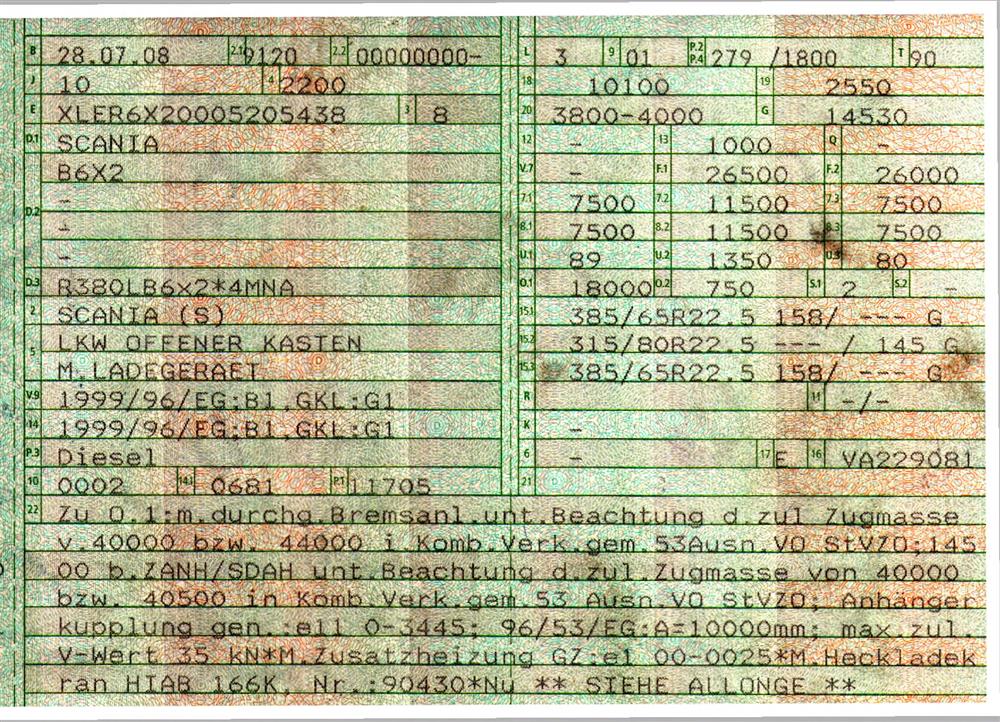 B 28.07.08 2.1 9120 2.2 00000000-
J 10 4 2200
E XLER6X20005205438 3 8
D.1 SCANIA
B6X2
D.2 -
-
-
D.3 R380LB6x2*4MNA
2 SCANIA (S)
5 LKW OFFENER KASTEN
M.LADEGERAET
V.9 1999/96/EG;B1,GKL:G1
14 1999/96/EG;B1,GKL:G1
P.3 Diesel
10 0002 14.1 0681 P.1 11705
L 3 9 01 P.2 P.4 279 /1800 T 90
18 10100 19 2550
20 3800-4000 G 14530
12 - 13 1000 Q -
V.7 - F.1 26500 F.2 26000
7.1 7500 7.2 11500 7.3 7500
8.1 7500 8.2 11500 8.3 7500
U.1 89 U.2 1350 U.3 80
O.1 18000 O.2 750 S.1 2 S.2 -
15.1 385/65R22.5 158/ --- G
15.2 315/80R22.5 --- / 145 G
15.3 385/65R22.5 158/ --- G
R 11 -/-
K -
6 - 17 E 16 VA229081
21
22 Zu O.1:m.durchg.Bremsanl.unt.Beachtung d.zul Zugmasse
v.40000 bzw. 44000 i Komb.Verk.gem.53Ausn.VO StVZO;145
00 b.ZANH/SDAH unt.Beachtung d.zul.Zugmasse von 40000
bzw. 40500 in Komb Verk.gem.53 Ausn.VO StVZO; Anhänger
kupplung gen.:e11 0-3445; 96/53/EG:A=10000mm; max.zul.
V-Wert 35 kN*M.Zusatzheizung GZ:e1 00-0025*M.Heckladek
ran HIAB 166K, Nr.:90430*Nu ** SIEHE ALLONGE **